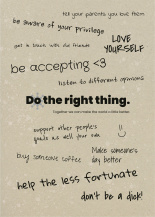 tell your parents you love them
be aware of your privilege
get in touch with old friends
LOVE
YOURSELF
be accepting <3
listen to different opinions
Do the right thing.
Together we can make the world a little better.
support other people's
goals as well your own
:)
buy someone coffee
Make someone's
day better
help the less fortunate
don't be a dick!